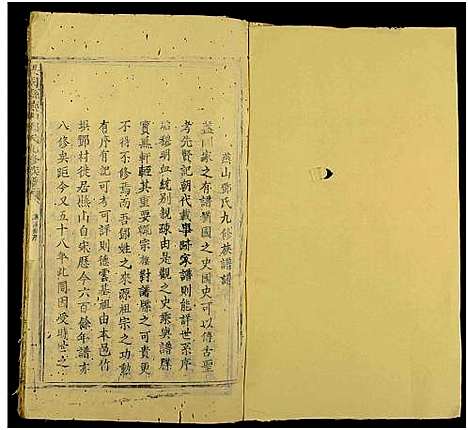 燕山鄧氏九修族譜譜
蓋聞家之有譜猶國之史國史可以傳古聖
考先賢記朝代載畢跡家譜則能詳世系序
昭穆明血統別親疎由是觀之史乘與譜牒
實無軒輊其重要槪宗祖對譜牒之可貴更
不待不修焉而吾鄧姓之來源祖宗之功勳
有序有記可考則德雲基祖由本邑竹
埧鄧村徙居燕山自宋歷今六百餘年譜亦
八修矣距今又五十八年此間因受時世之